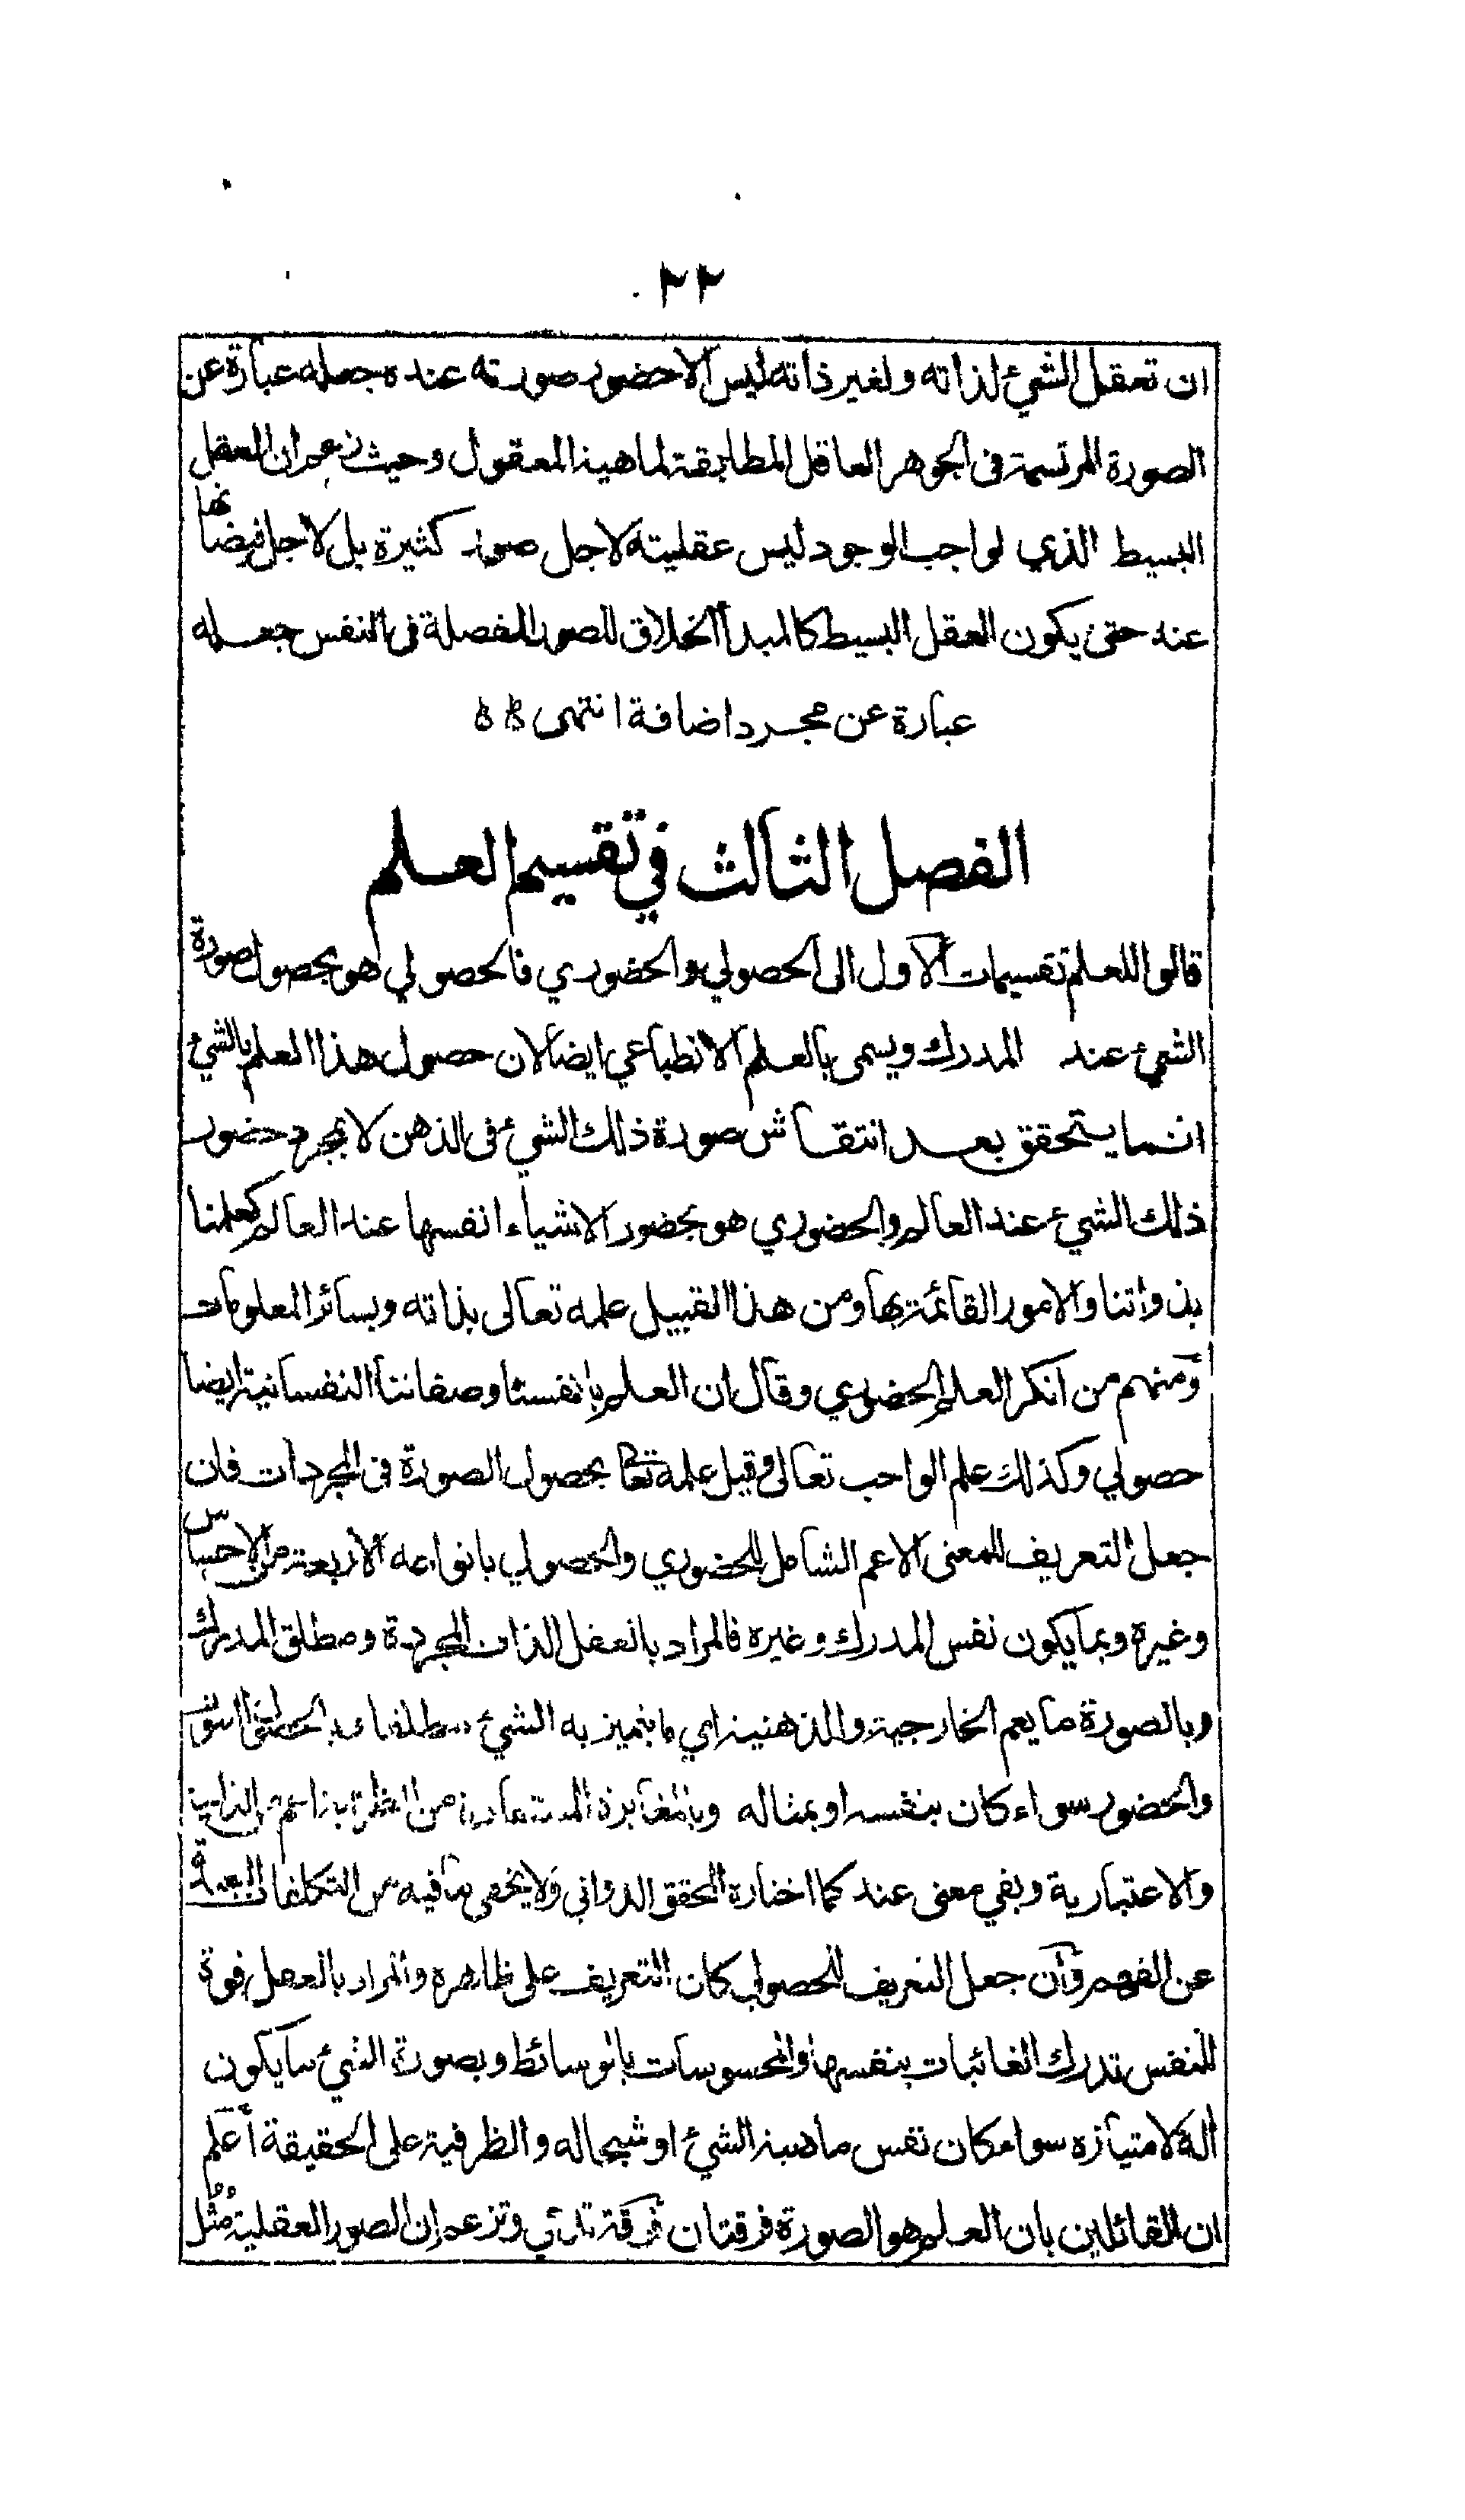 ٢٢
ان تعقل الشيء لذاته ولغير ذاته ليس الا حضور صورته عنده جعله عبارة عن
الصورة المرتسمة فى الجوهر العاقل المطابقة لماهية المعقول وحيث زعم ان العقل
البسيط الذي لواجب الوجود ليس عقليته لاجل صور كثيرة بل لاجل فيضانها
عنه حتى يكون العقل البسيط كالمبدأ الخلاق للصور المفصلة فى النفس جعله
عبارة عن مجرد اضافة انتهى
الفصل الثالث في تقسيم العلم
قالوا للعلم تقسيمات الاول الى الحصولي والحضوري فالحصولي هو بحصول صورة
الشيء عند المدرك ويسمى بالعلم الانطباعي ايضا لان حصول هذا العلم بالشيء
انما يتحقق بعد انتقاش صورة ذلك الشيء فى الذهن لا بمجرد حضور
ذلك الشيء عند العالم والحضوري هو بحضور الاشياء انفسها عند العالم كعلمنا
بذواتنا والامور القائمة بها ومن هذا القبيل علمه تعالى بذاته وبسائر المعلومات
ومنهم من انكر العلم الحضوري وقال ان العلم بانفسنا وصفاتنا النفسانية ايضا
حصولي وكذلك علم الواجب تعالى وقيل علمه تعالى بحصول الصورة فى المجردات فان
جعل التعريف للمعنى الاعم الشامل للحضوري والحصولي بانواعه الاربعة من الاحساس
وغيره وبما يكون نفس المدرك وغيره فالمراد بالعقل الذات المجردة ومطلق المدرك
وبالصورة ما يعم الخارجية والذهنية اي ما يتميز به الشيء مطلقا
والحضور سواء كان بنفسه او بمثاله وبالمغايرة المستفادة من الظرفية اعم من الذاتية
والاعتبارية وبفي معنى عند كما اختاره المحقق الدواني ولا يخفى ما فيه من التكلفات البعيدة
عن الفهم وان جعل التعريف للحصولي كان التعريف على ظاهره والمراد بالعقل قوة
للنفس تدرك الغائبات بنفسها والمحسوسات بالوسائط وبصورة الشيء ما يكون
آلة لامتيازه سواء كان نفس ماهية الشيء او شبحا له والظرفية على الحقيقة أعلم
ان القائلين بان العلم هو الصورة فرقتان فرقة تدعي وتزعم ان الصور العقلية مُثُل